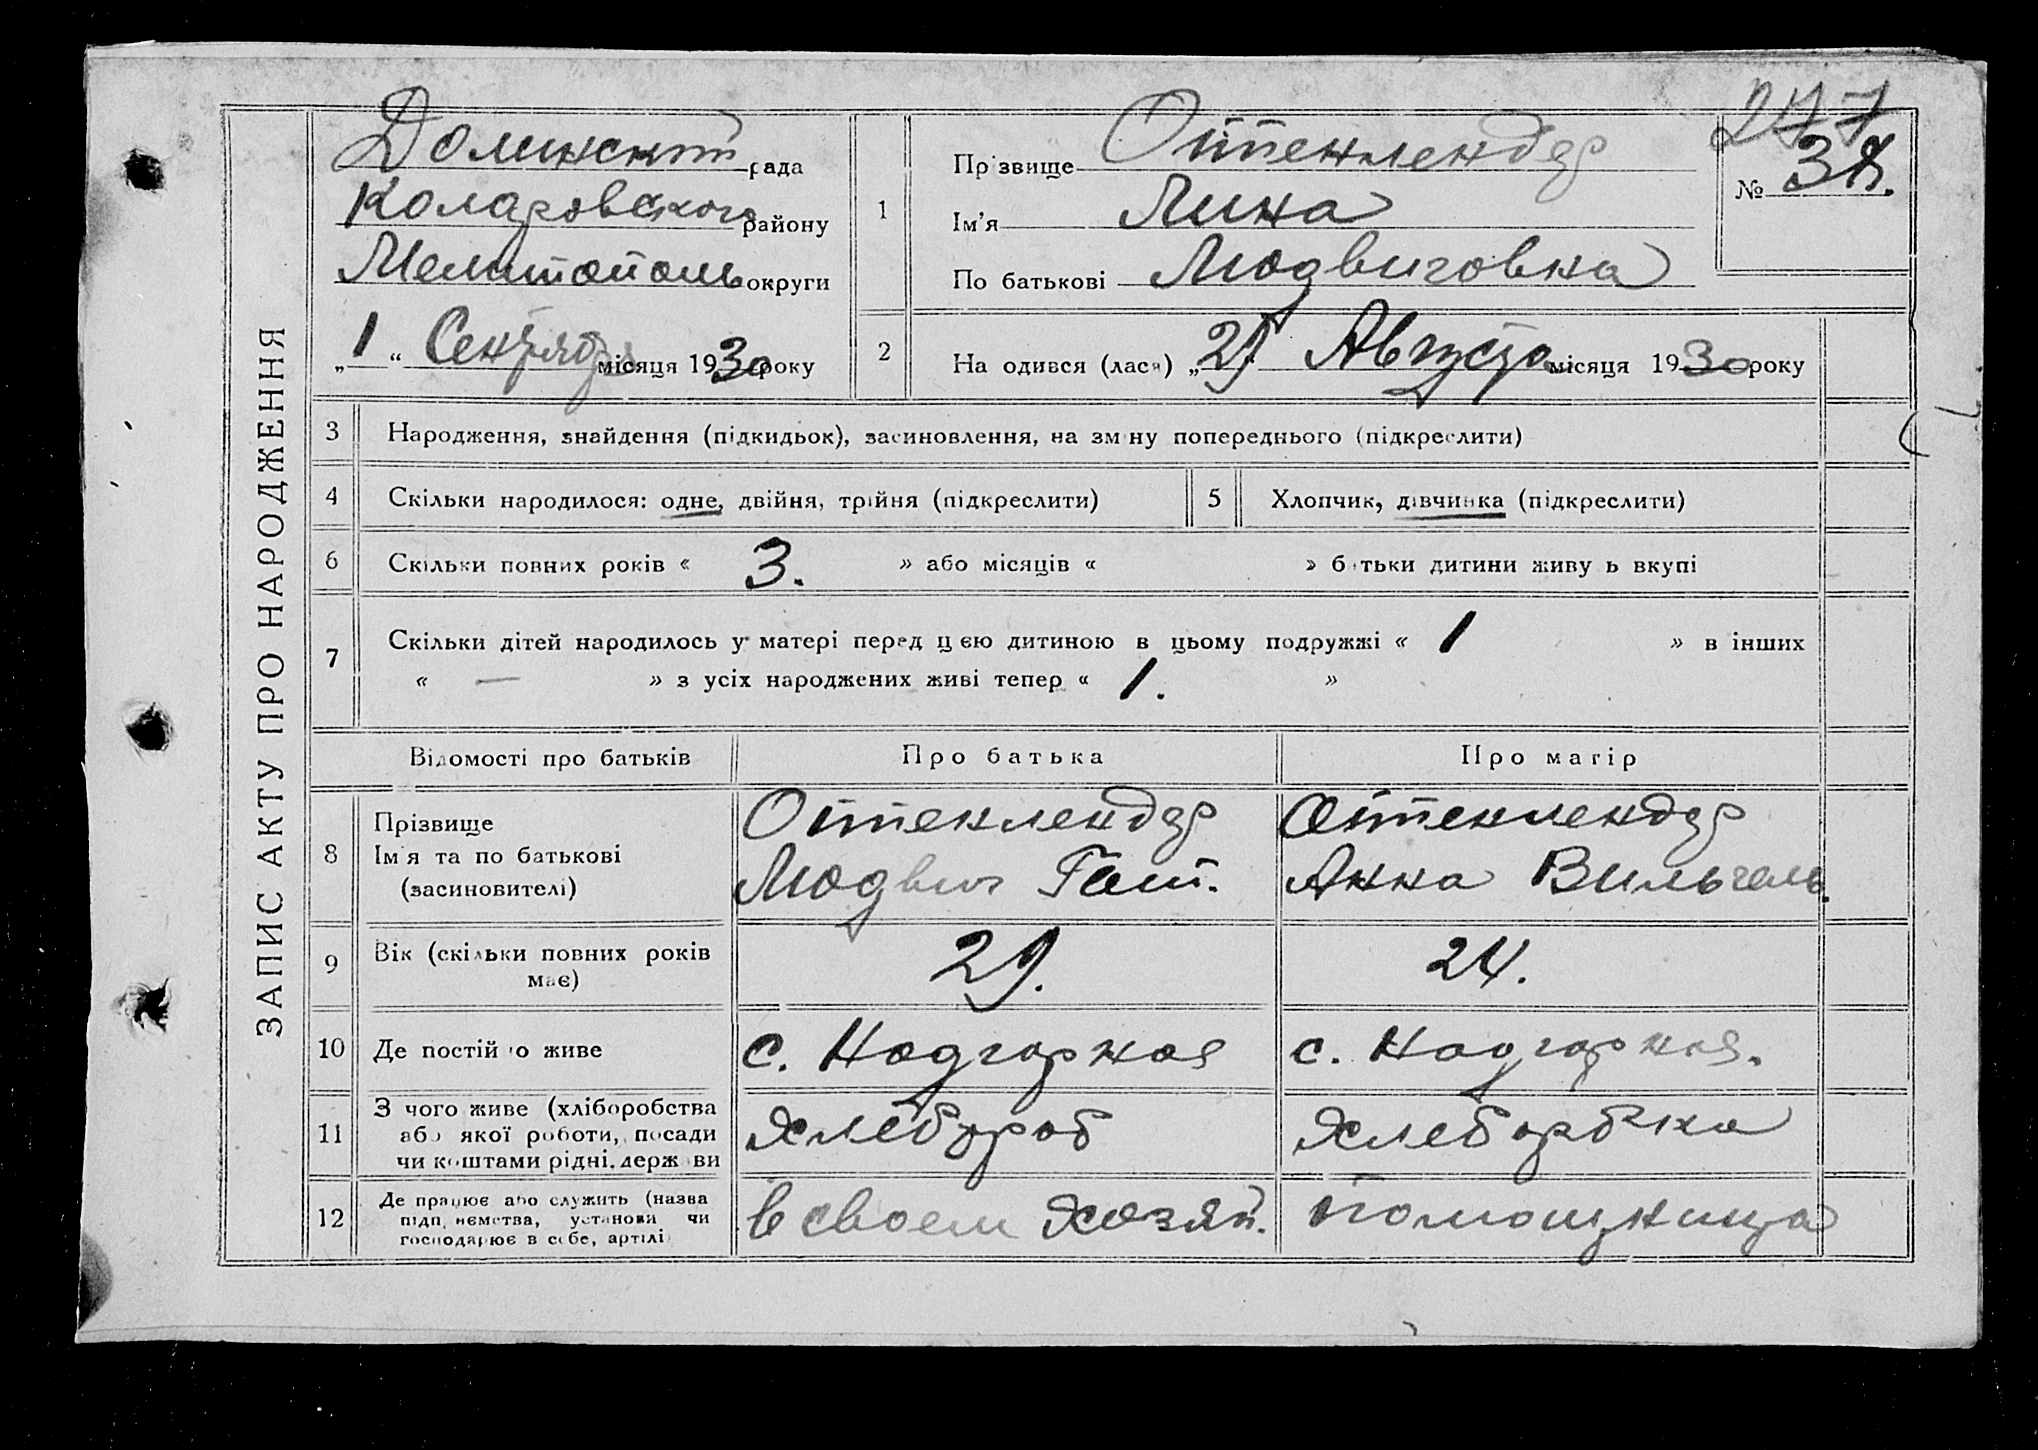 277
ЗАПИС АКТУ ПРО НАРОДЖЕННЯ
Долинский рада
Коларовского району
Мелитополь округи
„1“ Сентября місяця 1930 року
1
Прізвище Оттенлендер
Ім'я Лина
По батькові Людвиговна
№ 38.
2
На одився (лася) „29 Августа місяця 1930 року
3 Народження, знайдення (підкидьок), засиновлення, на зміну попереднього (підкреслити)
4 Скільки народилося: одне, двійня, трійня (підкреслити)
5 Хлопчик, дівчинка (підкреслити)
6 Скільки повних років « 3. » або місяців « » батьки дитини живуть вкупі
7 Скільки дітей народилось у матері перед цією дитиною в цьому подружжі « 1 » в інших
« — » з усіх народжених живі тепер « 1. »
Відомості про батьків Про батька Про матір
8 Прізвище Ім'я та по батькові (засиновителі)
Оттенлендер
Людвиг Гот.
Оттенлендер
Анна Вильгель.
9 Вік (скільки повних років має) 29. 24.
10 Де постійно живе с. Надгорная с. Надгорная.
11 З чого живе (хліборобства
або якої роботи, посади
чи коштами рідні, держави
Хлебороб Хлеборобка
12 Де працює або служить (назва
підприємства, установи чи
господарює в себе, артілі
в своем хозяй. помощница